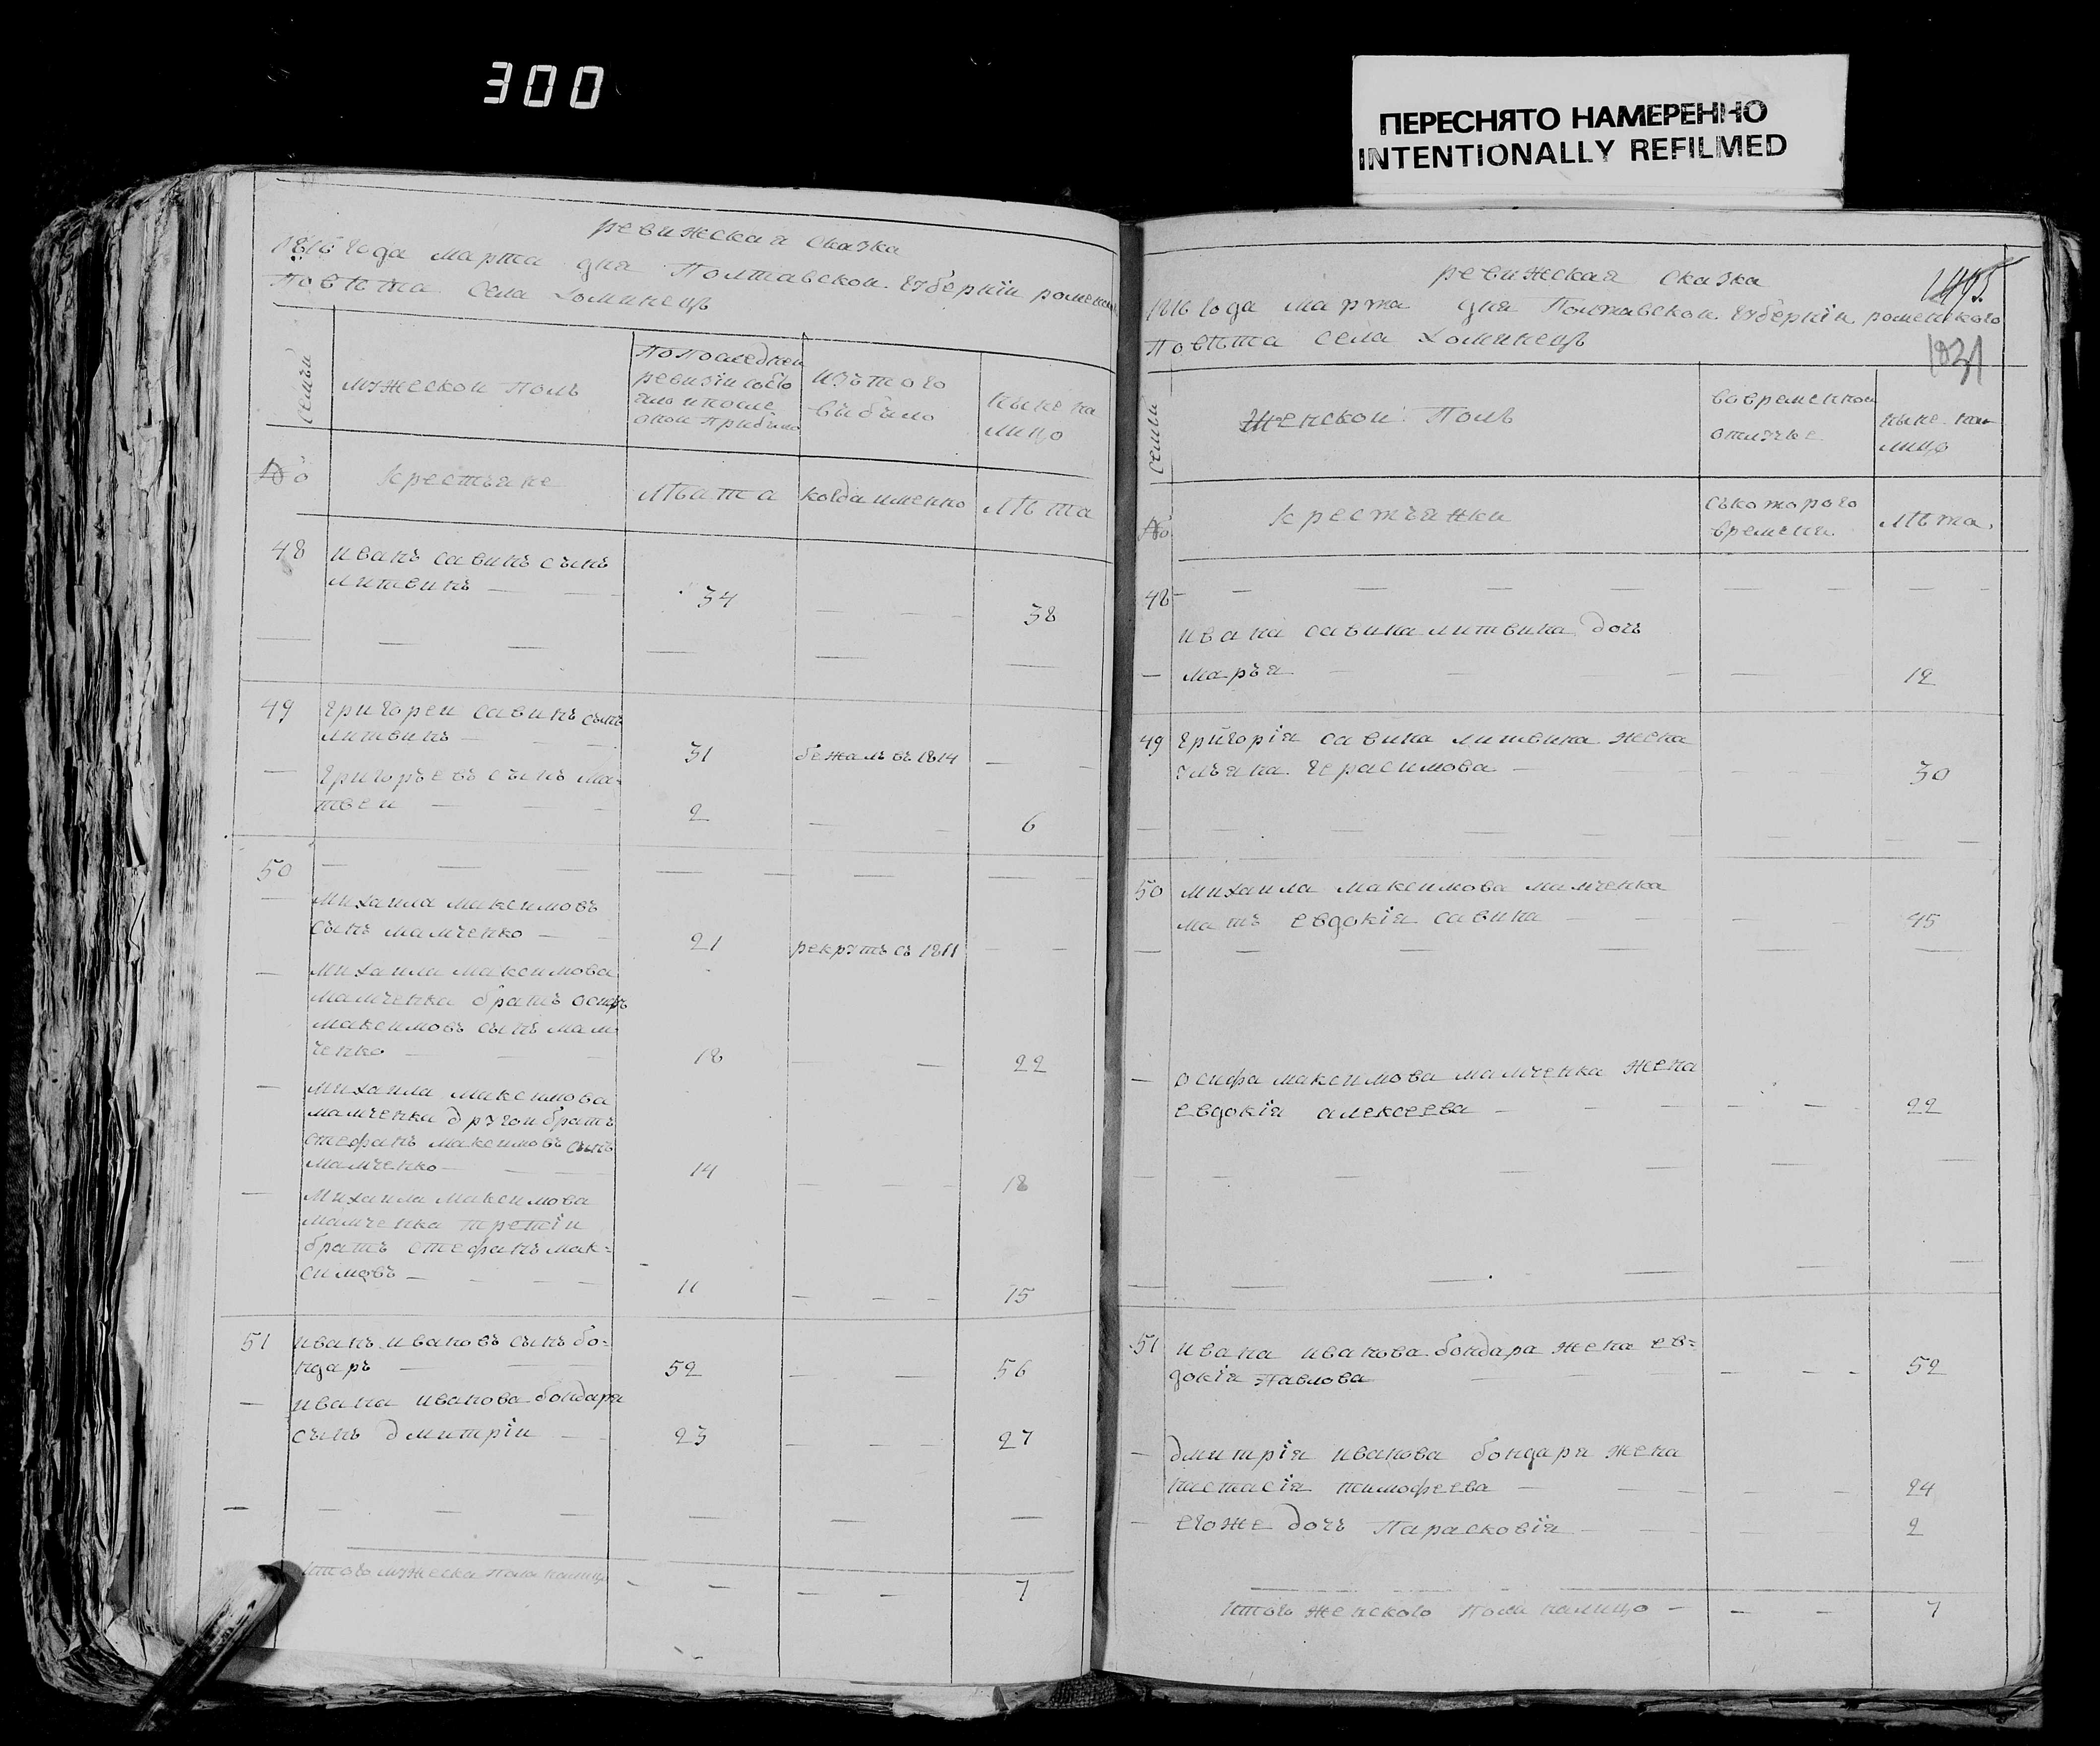 300
ПЕРЕСНЯТО НАМЕРЕННО
INTENTIONALLY REFILMED
ревижская сказка
1816 года марта дня Полтавской губернiи роменского
Повѣта села Хоминецъ
семьи
мужеской полъ
По последней
ревизiи состо
яло и после
оной прибыло
изъ того
выбыло
ныне на
лицо
№
крестьяне
лѣта
когда именно
лѣта
48
иванъ савинъ сынъ
литвинъ
34
38
49
григорей савинъ сынъ
литвинъ
31
бежалъ въ 1814
григорьевъ сынъ ма-
твей
2
6
50
михаила максимовъ
сынъ мамченко
21
рекрутъ съ 1811
михаила максимова
мамченка братъ осифъ
максимовъ сынъ мам
ченко
18
22
михаила максимова
мамченка другой братъ
стефанъ максимовъ сынъ
мамченко
14
18
михаила максимова
мамченка третiй
братъ стефанъ мак=
симовъ
11
15
51
иванъ ивановъ сынъ бо-
ндаръ
52
56
ивана иванова бондаря
сынъ дмитрiй
23
27
итого мужеска пола налицо
7
ревижская сказка
1816 года марта дня Полтавской губернiи роменского
Повѣта села Хоминецъ
1031
семьи
женской полъ
во временной
отлучке
ныне на
лицо
№
крестьянки
съ которого
времени
лѣта
48
ивана савина литвина дочь
марья
12
49
григорiя савина литвина жена
ульяна герасимова
30
50
михаила максимова мамченка
мать евдокiя савина
45
осифа максимова мамченка жена
евдокiя алексеева
22
51
ивана иванова бондара жена ев=
докiя павлова
52
дмитрiя иванова бондаря жена
настасiя тимофеева
24
егоже дочь Парасковiя
2
итого женского пола налицо
7